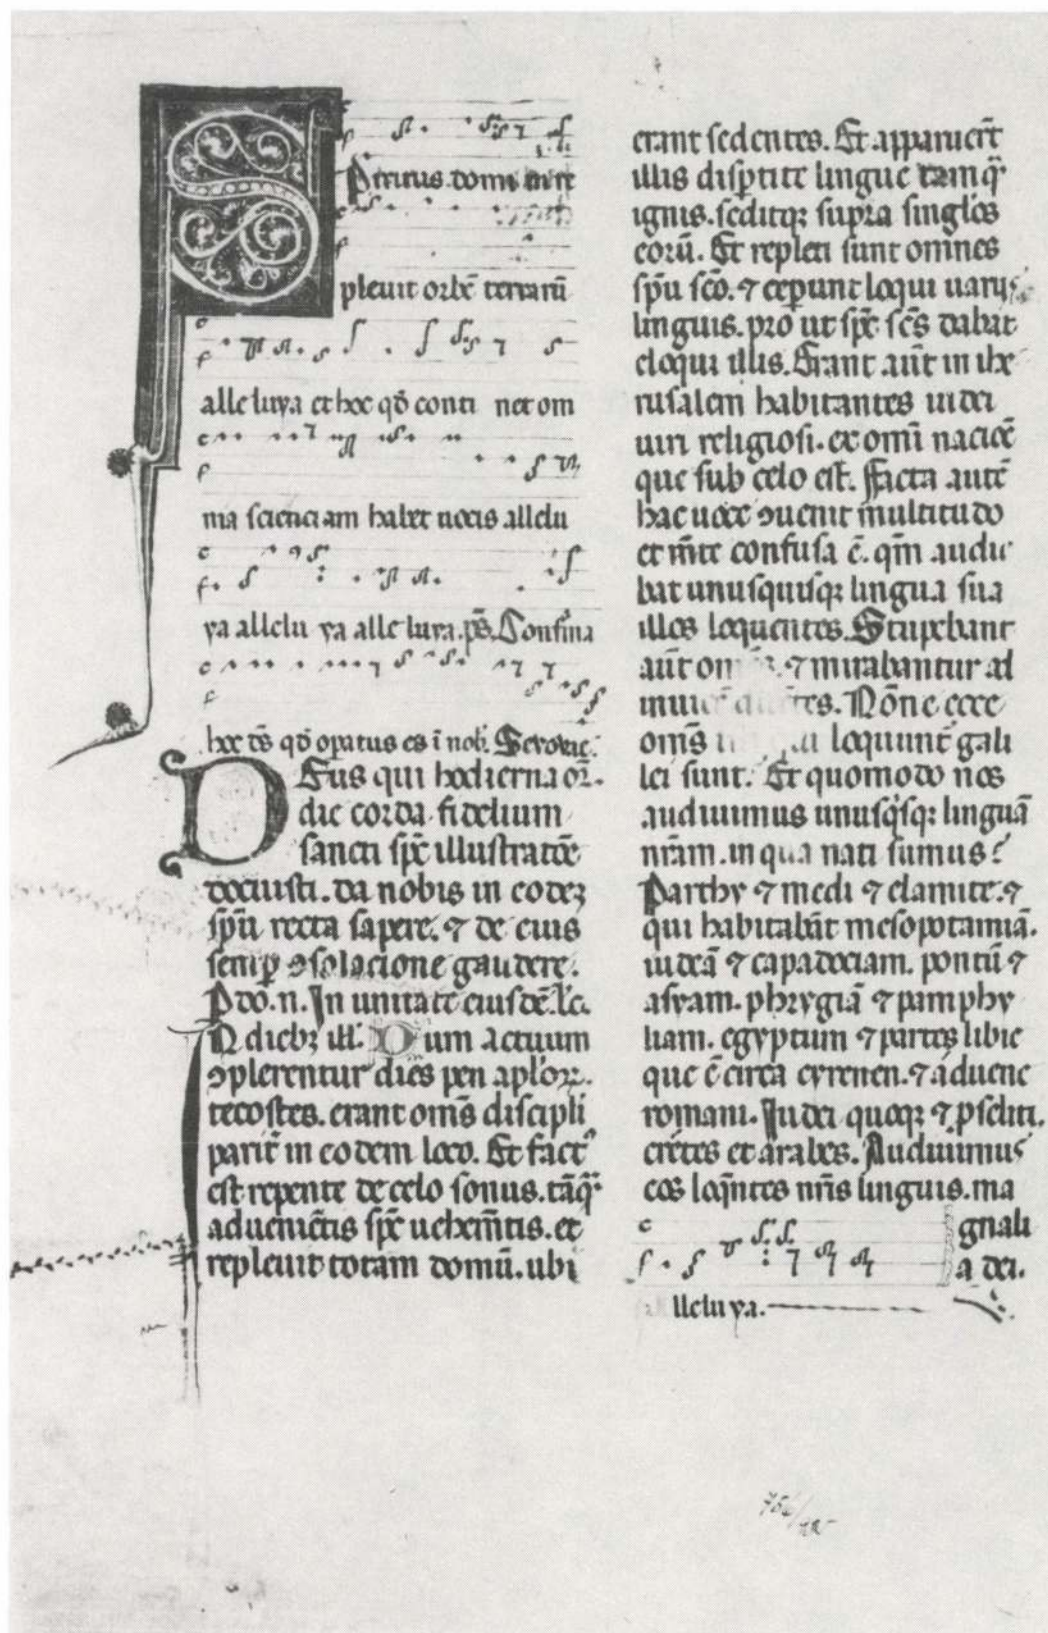 Spiritus domini re
pleuit orbē terrarū
alleluya et hoc qđ conti net om
nia scienciam habet uocis allelu
ya allelu ya alle luya. ps̄. Confirma
hoc ds̄ qđ opatus es ī nob.
Deus qui hodierna or̄.
die corda fidelium
sancti spc̄ illustratōe
docuisti. da nobis in eodeꝫ
spū recta sapere. ⁊ de eius
semꝑ ꝯsolacione gaudere.
P do. n. In unitate eiusdē. lc̄.
In diebꝫ ill. Dum
ꝯplerentur dies pen
tecostes. erant oms̄ discipli
parit̄ in eodem loco. Et fact᾿
est repente de celo sonus. tāqᷓ
adueniētis spc̄ uehem̄tis. et
repleuit totam domū. ubi
erant sedentes. Et apparuer̄t
illis disꝑtite lingue tamqᷓ
ignis. seditqꝫ supra singlos
eorū. Et repleti sunt omnes
spū sc̄o. ⁊ ceperunt loqui uarijs
linguis. pro ut spc̄ sc̄s dabat
eloqui illis. Erant aūt in ihe
rusalem habitantes iudei
uiri religiosi. ex omī nacioē
que sub celo est. Facta autē
hac uoce ꝯuenit multitudo
et m̄te confusa ē. qm̄ audie
bat unusquisqꝫ lingua sua
illos loquentes. Stupebant
aūt ⁊ mirabantur ad
Nōne ecce
oms̄ loquunt̄ gali
lei sunt. Et quomodo nos
audiuimus unusqisqꝫ linguā
nr̄am. in qua nati sumus?
Parthy ⁊ medi ⁊ elamite. ⁊
qui habitabāt mesopotamiā.
iudeā ⁊ capadociam. pontū ⁊
asyam. phrygiā ⁊ pamphy
liam. egyptum ⁊ partes libie
que ē circa cyrenen. ⁊ aduene
romani. Iudei quoqꝫ ⁊ pseliti.
cretes et arabes. Audiuimus
eos loqntes nr̄is linguis. ma
gnali
a dei.
lleluya.